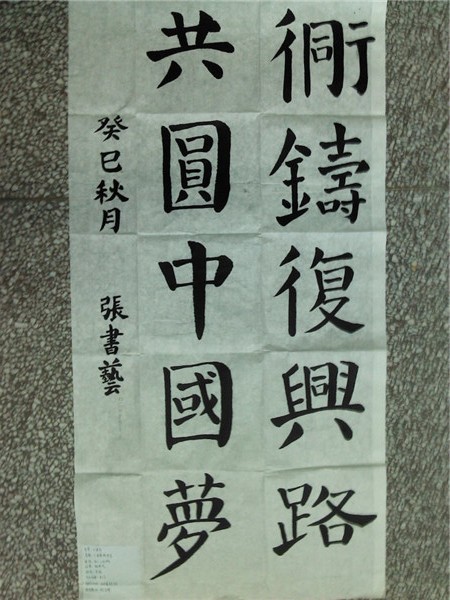 衕鑄復興路
共圓中國夢
癸巳秋月 張書藝